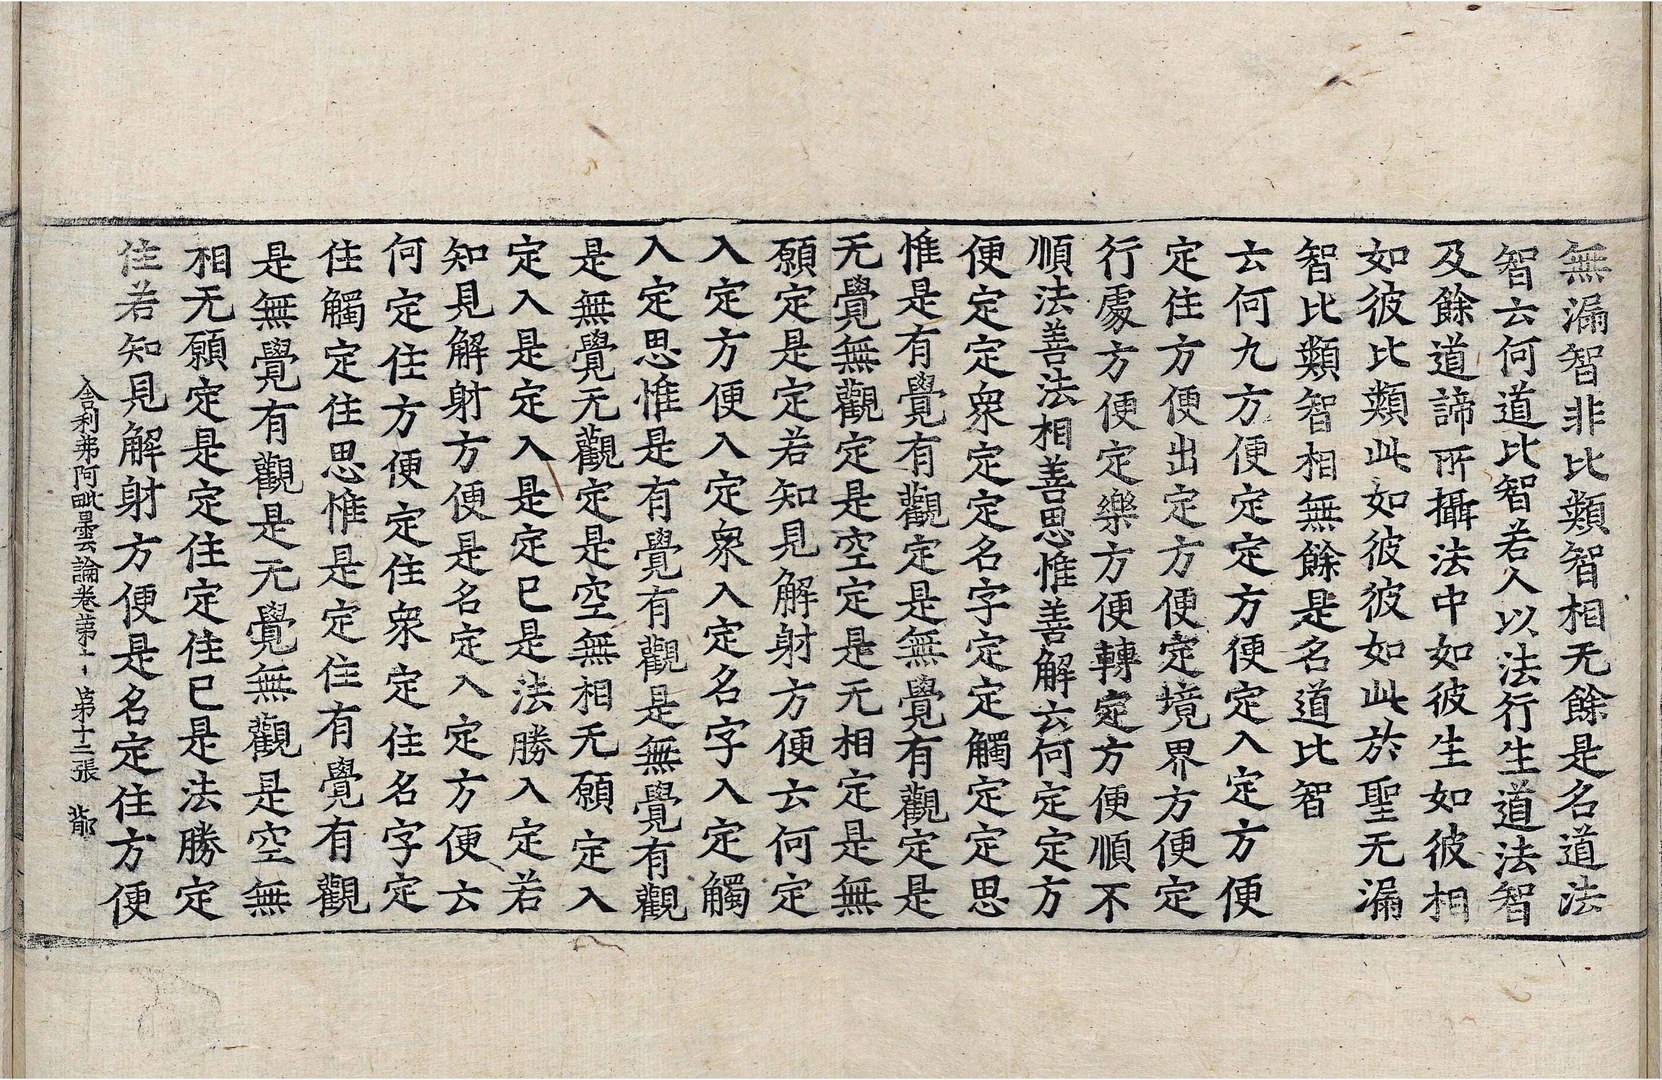 無漏智非比類智相无餘是名道法
智云何道比智若人以法行生道法智
及餘道諦所攝法中如彼生如彼相
如彼比類此如彼彼如此於聖无漏
智比類智相無餘是名道比智
云何九方便定定方便定入定方便
定住方便出定方便定境界方便定
行處方便定樂方便轉定方便順不
順法善法相善思惟善解云何定定方
便定定衆定定名字定定觸定定思
惟是有覺有觀定是無覺有觀定是
无覺無觀定是空定是无相定是無
願定是定若知見解射方便云何定
入定方便入定衆入定名字入定觸
入定思惟是有覺有觀是無覺有觀
是無覺无觀定是空無相无願定入
定入是定入是定已是法勝入定若
知見解射方便是名定入定方便云
何定住方便定住衆定住名字定
住觸定住思惟是定住有覺有觀
是無覺有觀是无覺無觀是空無
相无願定是定住定住已是法勝定
住若知見解射方便是名定住方便
舍利弗阿毗曇論卷第十一 第十二張